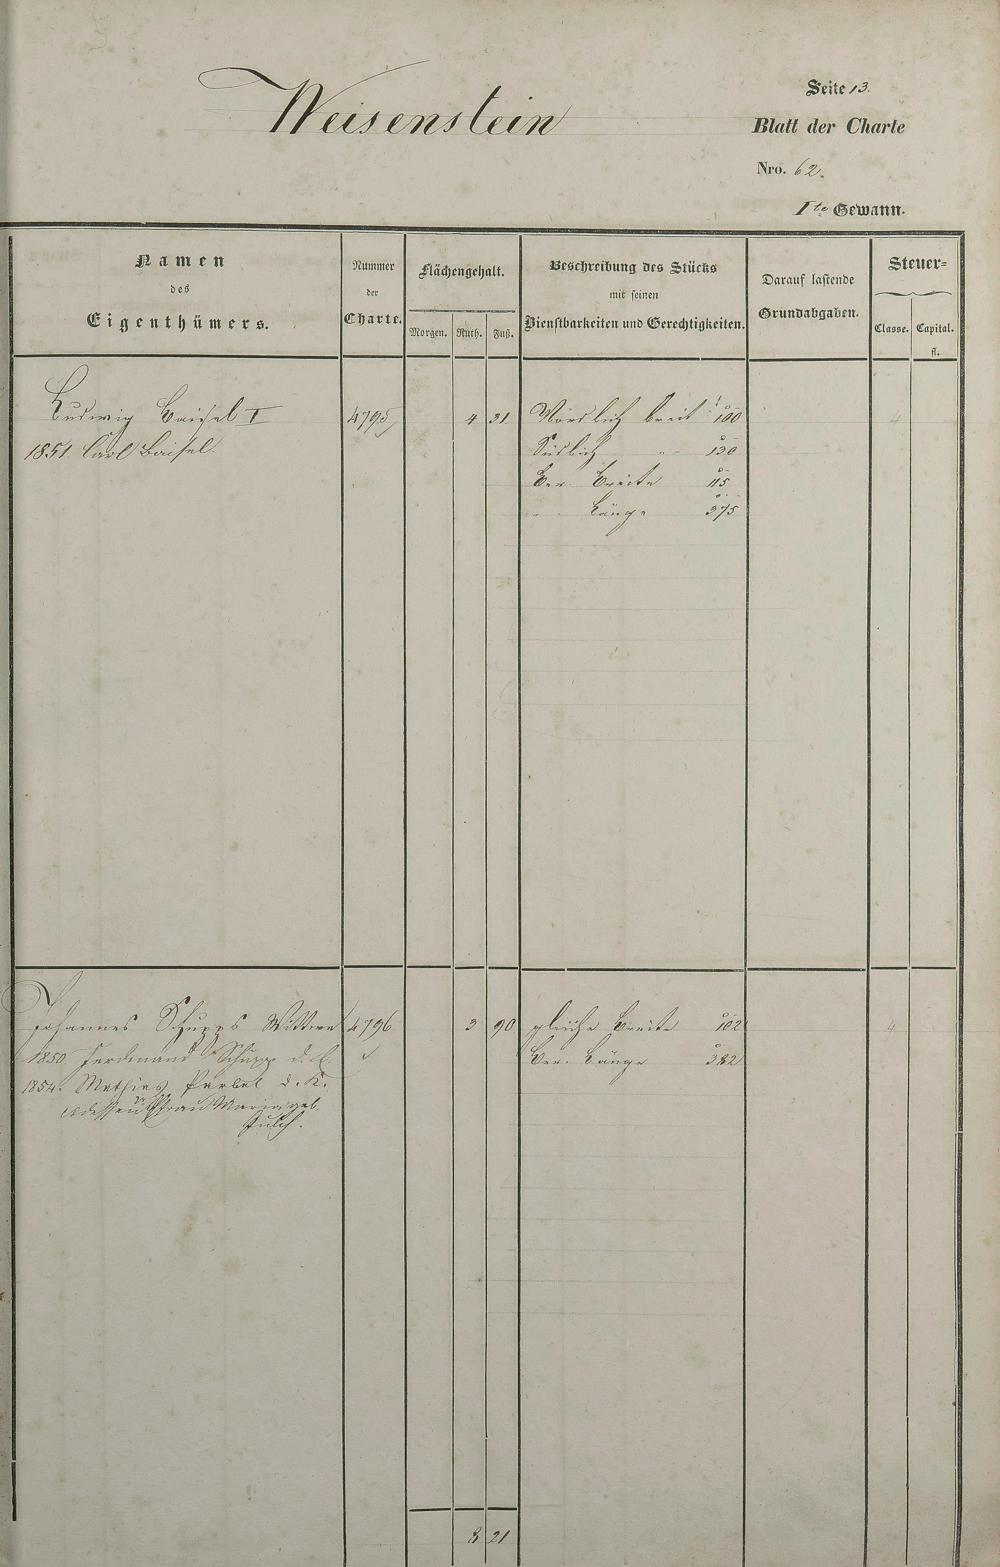 Weisenstein
Seite 13.
Blatt der Charte
Nro. 62.
Ite Gewann.
Namen des Eigenthümers.
Nummer der Charte.
Flächengehalt.
Morgen. Ruth. Fuß.
Beschreibung des Stücks mit seinen Dienstbarkeiten und Gerechtigkeiten.
Darauf lastende Grundabgaben.
Steuer=
Classe. Capital. fl.
Ludwig Baisel I 4795 4 31 Nördlich breit 100 4
1851 Carl Baisel. Südlich " 130
Ber. Breite 115
" Länge 375
Johannes Schupps Wittwe 4796 3 90 gleiche Breite 102 4
1850 Ferdinand Schupp d. L. Ber. Länge 382
1854. Mathias Perbel d. K.
dessen Frau Maria geb.
8 21